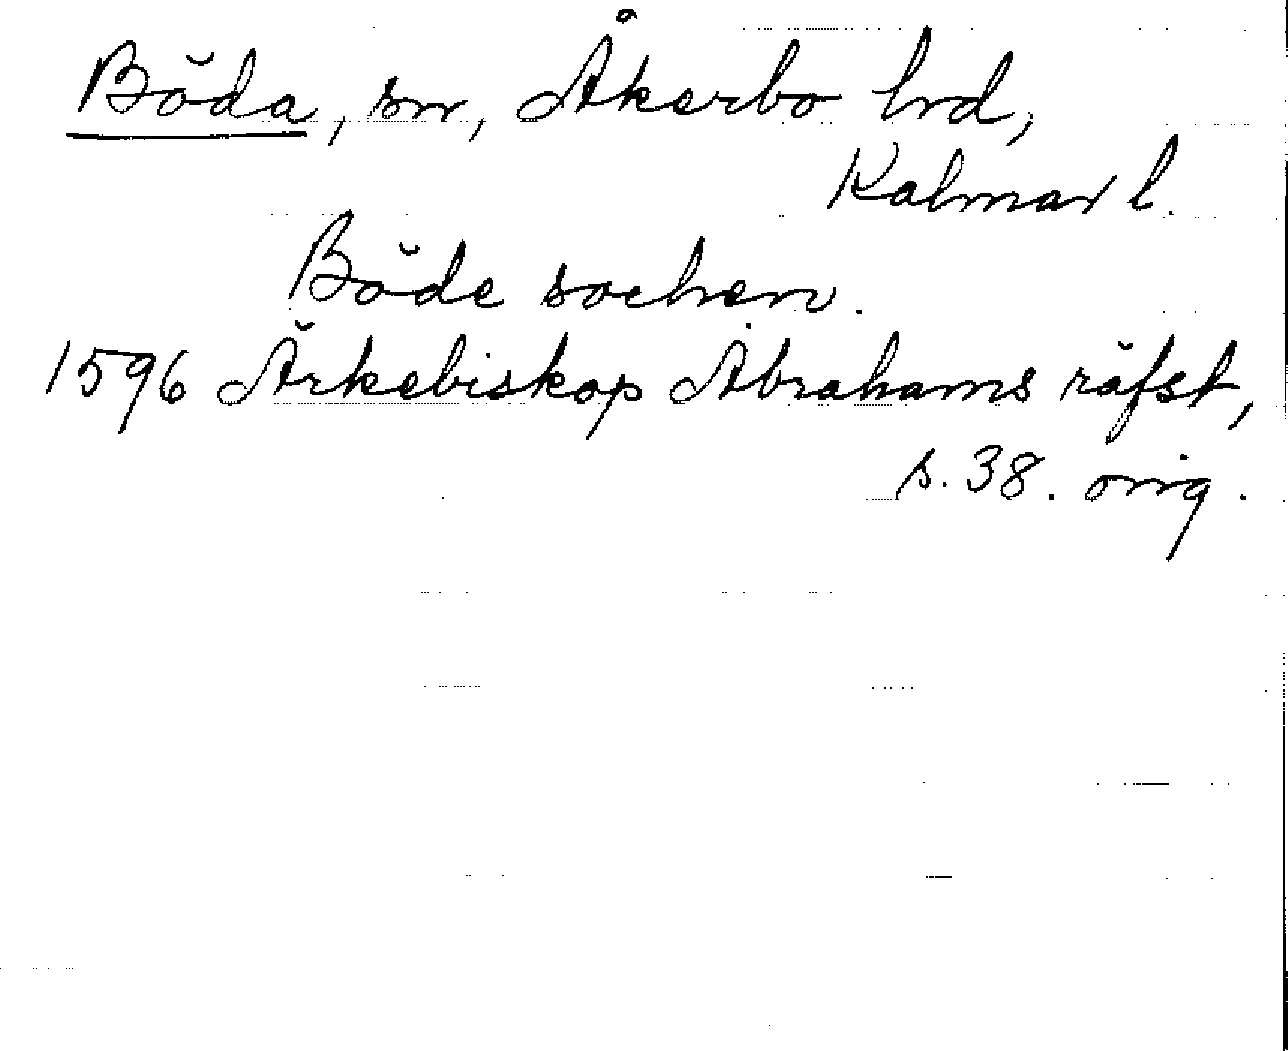 Böda, sn, Åkerbo hd,
Kalmar l.
Böde sochen.
1596 Ärkebiskop Abrahams räfst,
s. 38. orig.